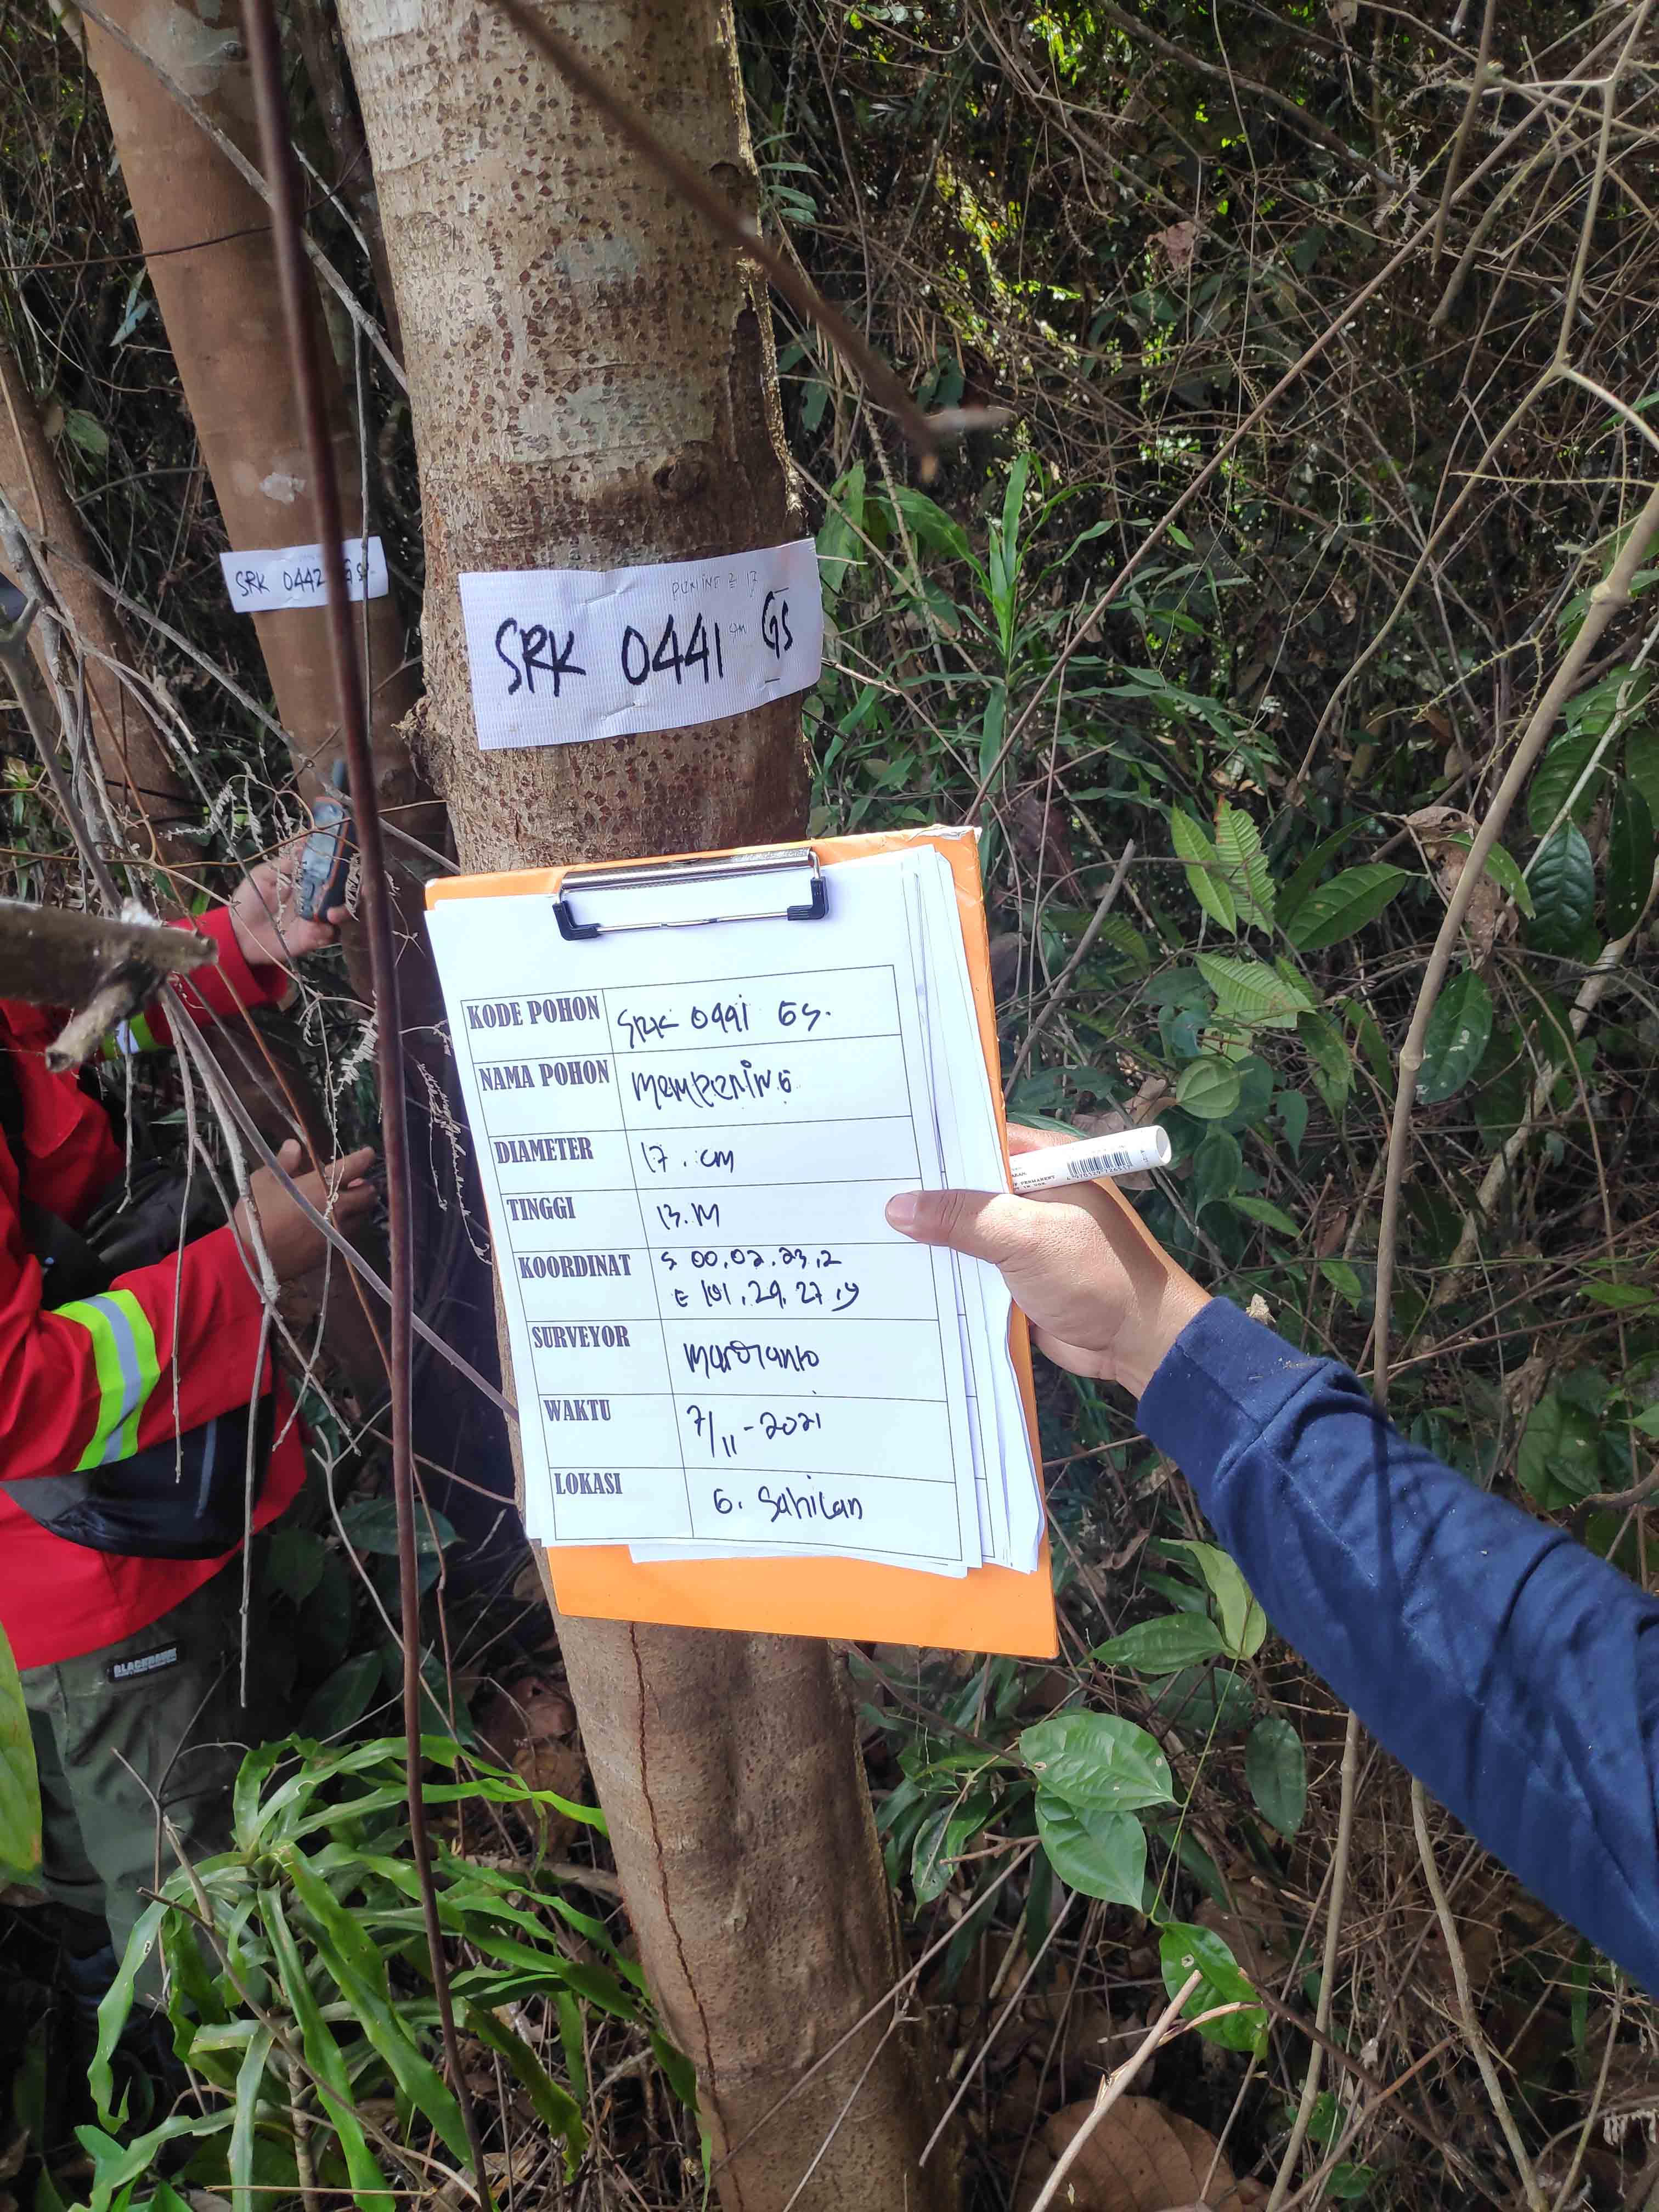 SRK 0442
SRK 0441 GS
KODE POHON SRK 0441 GS.
NAMA POHON MEMPENING
DIAMETER 17. cm
TINGGI 13. M
KOORDINAT S 00.02.23,2
E 101.29.27,9
SURVEYOR
WAKTU 7/11-2021
LOKASI G. Sahilan
BLACKHAWK